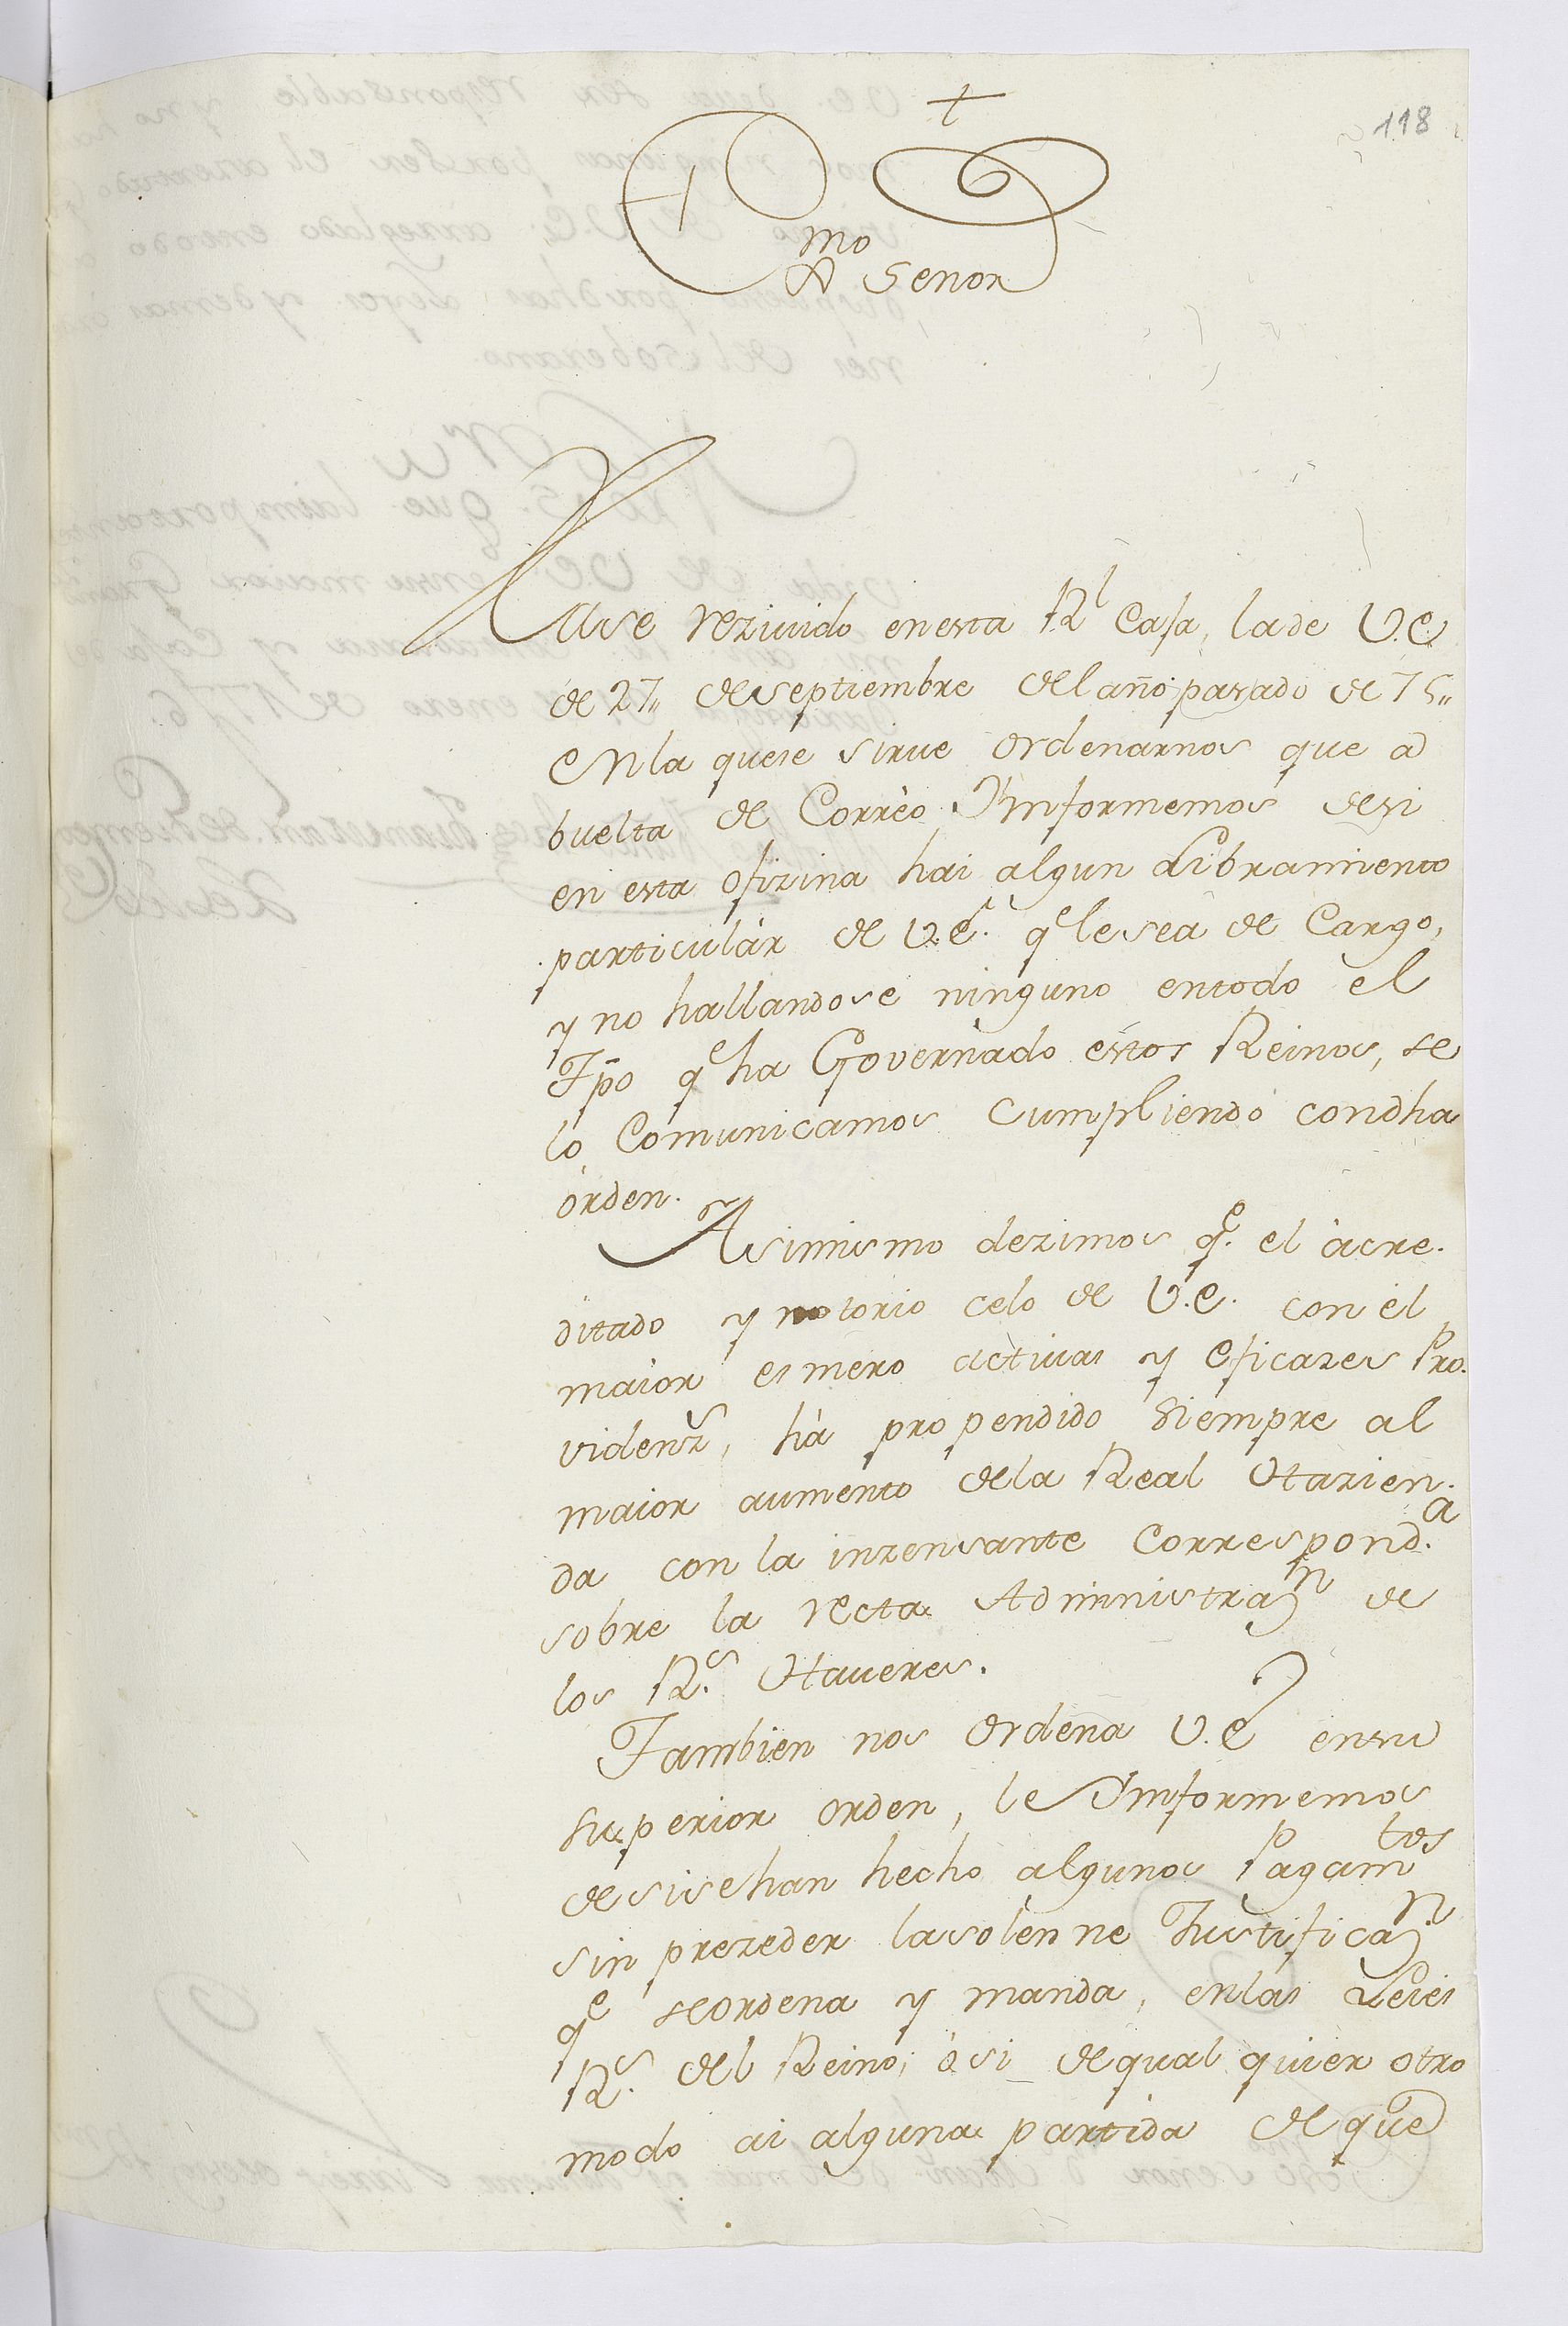 118
+
Exmo Senor
Hase rezivido en esta Rl Casa, la de V.E.
de 27,, de septiembre del año pasado de 75,,
en la que se sirve ordenarnos que a
buelta de Corrèo Ynformemos de si
en esta ofizina hai algun Libramiento
particulàr de V.E. qe le sea de Cargo,
y no hallandose ninguno en todo el
Tpo qe ha Governado estos Reinos, se
lo Comunicamos Cumpliendo con dha
òrden.
Asimismo dezimos qe. el àcre.
ditado y notorio celo de V.E. con el
maior esmero activas y eficazes Pro.
videnzs, hà propendido siempre al
maior aumento de la Real Hazien.
da con la inzensante Correspond.a
sobre la recta Administrazn de
los Rs. Haveres.
Tambien nos ordena V.E. en su
superior orden, le Ynformemos
de si se han hecho algunos Pagamtos
sin prezeder la solenne Justificazn
qe se ordena y manda, en las Leies
Rs. del Reino, ò si de qual quier otro
modo ai alguna partida de que